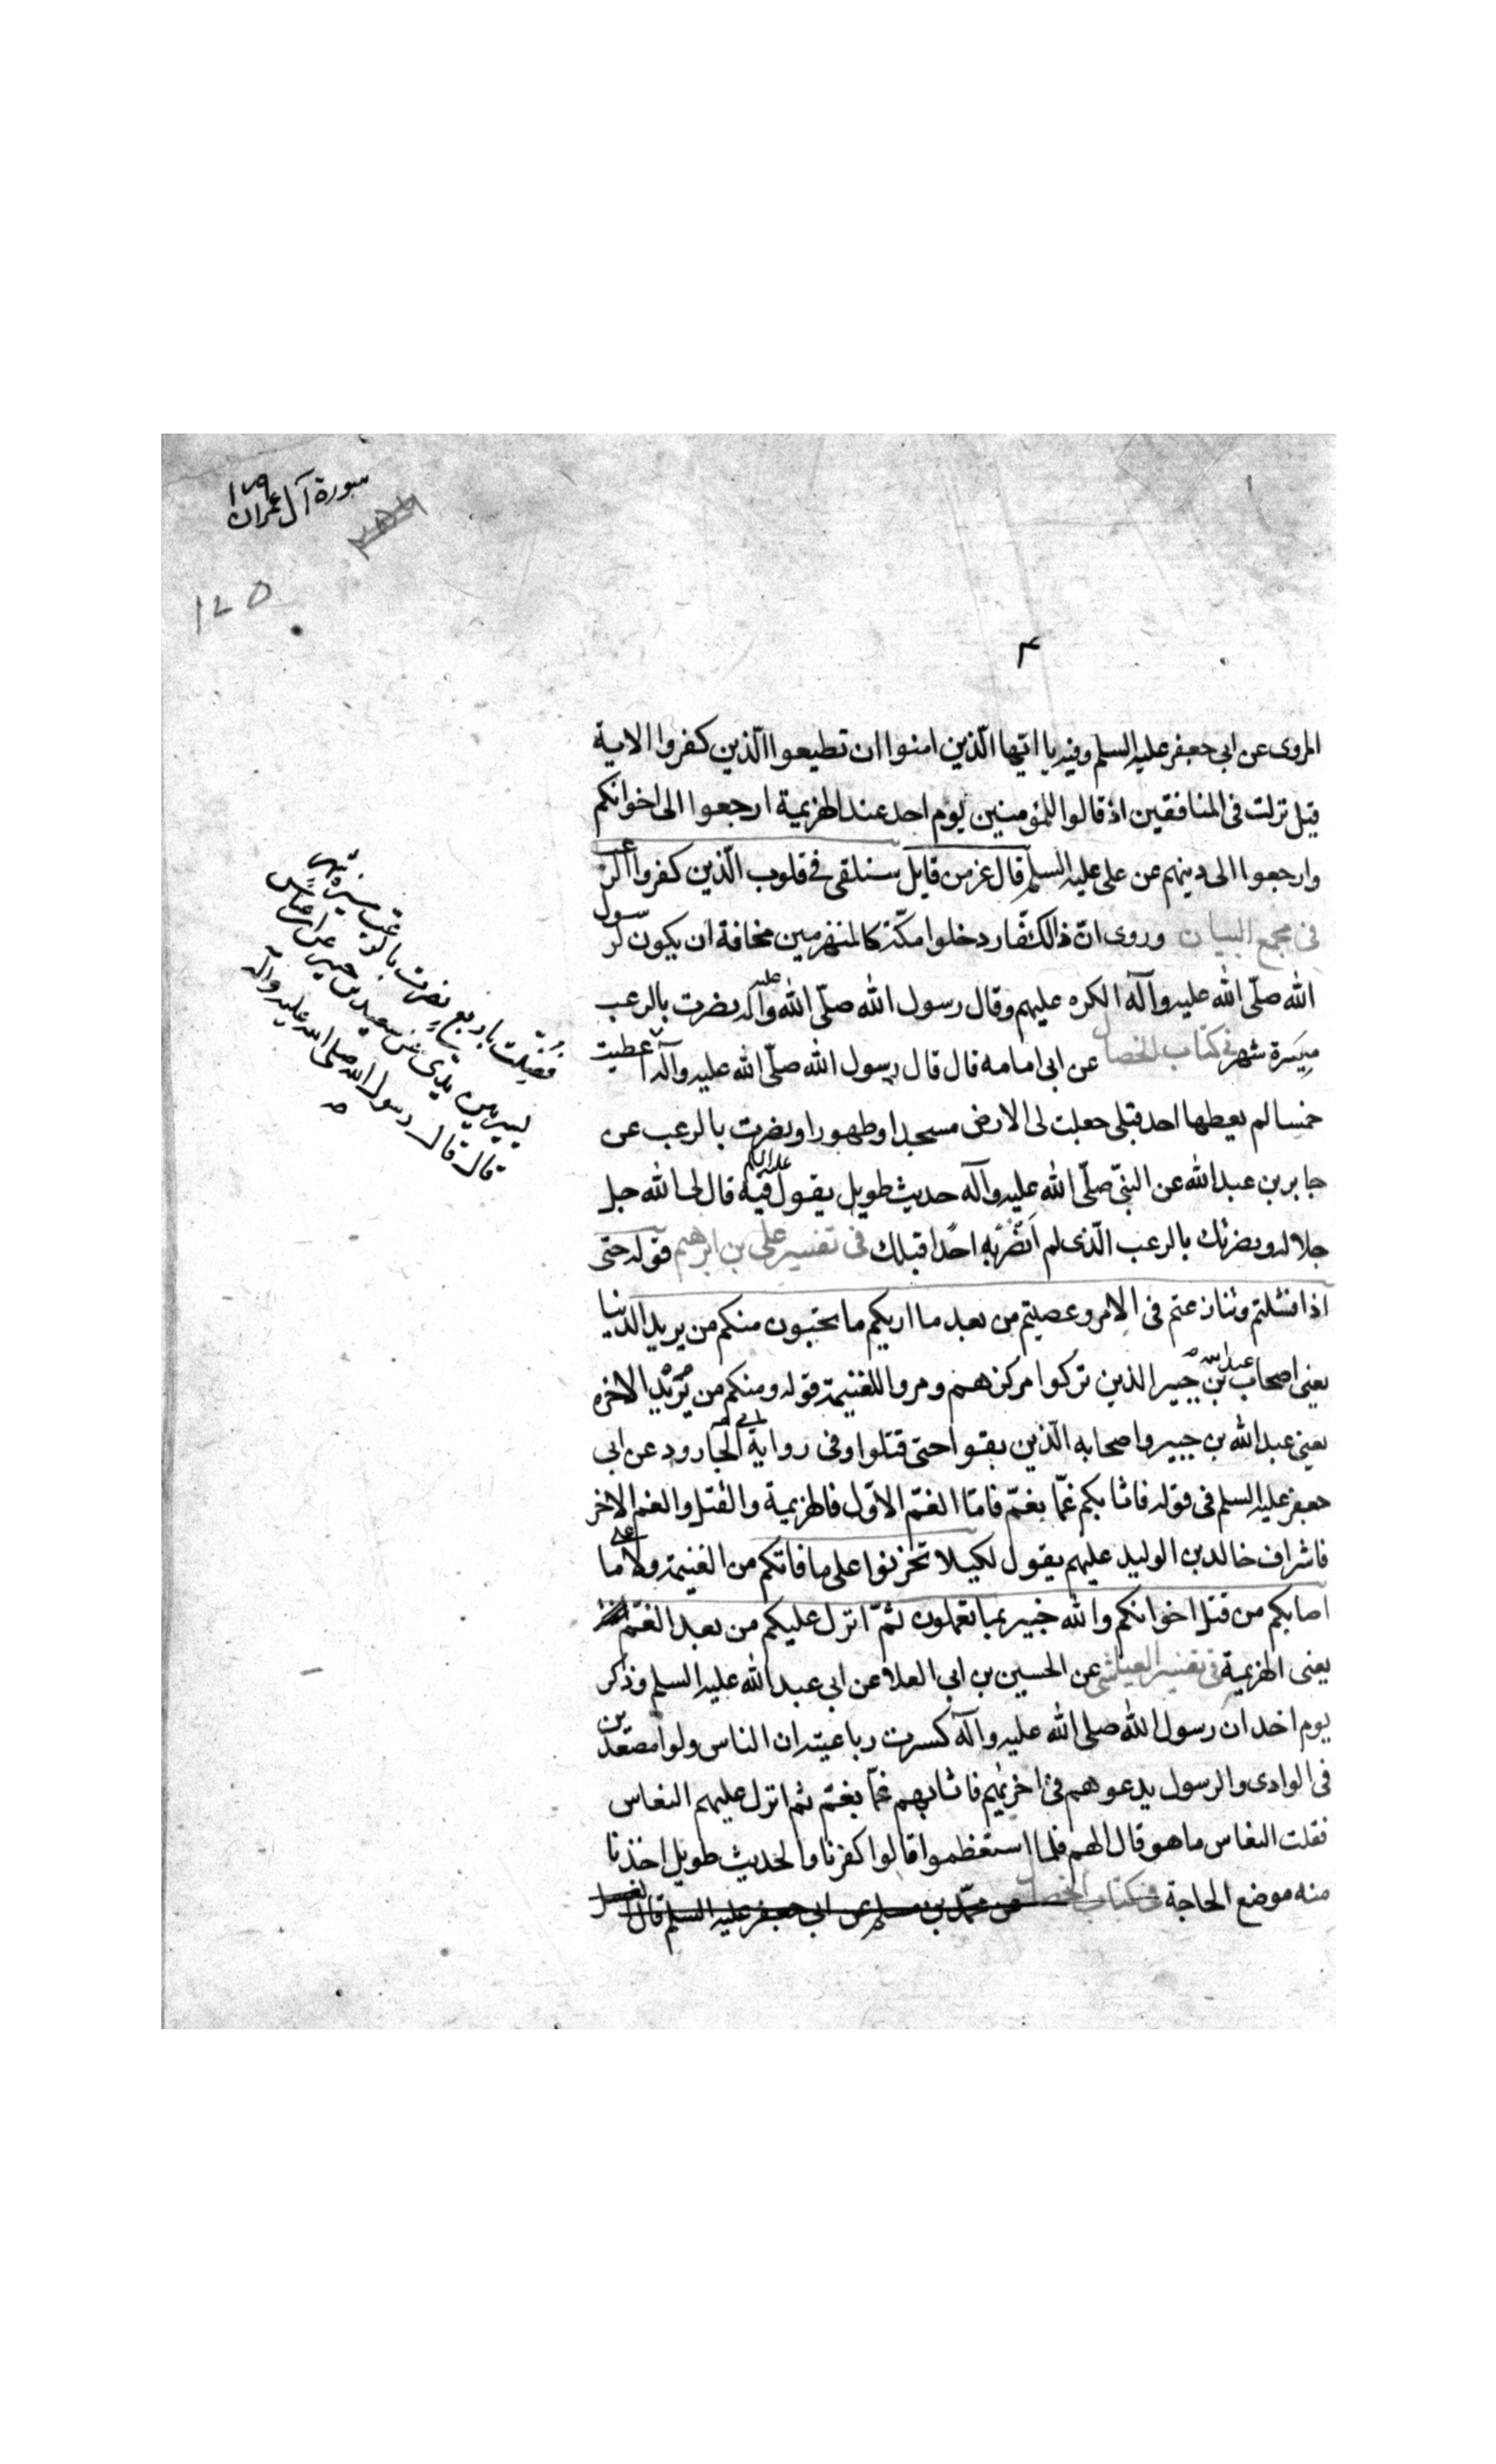 سورة آل عمران
١٧٩
١٧٥
٣
المروى عن ابى جعفر عليه السلم وفيه يا ايّها الّذين امنوا ان تطيعوا الّذين كفروا الاية
قيل نزلت فى المنافقين اذ قالوا للمؤمنين يوم احد عند الهزيمة ارجعوا الى اخوانكم
وارجعوا الى دينهم عن على عليه السلم قال عز من قايل سنلقى فى قلوب الّذين كفروا الرعب
فى مجمع البيان وروى انّ الكفّار دخلوا مكّة كالمنهزمين مخافة ان يكون لرسول
الله صلّى الله عليه وآله الكره عليهم وقال رسول الله صلّى الله عليه وآله نصرت بالرعب
ميسرة شهر فى كتاب الخصال عن ابى امامه قال قال رسول الله صلّى الله عليه وآله اعطيت
خمسا لم يعطها احد قبلى جعلت لى الارض مسجدا وطهورا ونصرت بالرعب عن
جابر بن عبد الله عن النبىّ صلّى الله عليه وآله حديث طويل يقول فيه عليه السلم قال لى الله جل
جلاله ونصرتك بالرعب الّذى لم اَنْصُرْ بِهِ احدًا قبلك فى تفسير على بن ابرهيم قوله حتى
اذا فشلتم وتنازعتم فى الامر وعصيتم من بعد ما اريكم ما تحبون منكم من يريد الدّنيا
يعنى اصحاب عبد الله بن جبير الذين تركوا مركزهم ومروا للغنيمة قوله ومنكم من يُرِيدُ الاخره
يعنى عبد الله بن جبير واصحابه الّذين بقوا حتى قتلوا وفى رواية ابى الجارود عن ابى
جعفر عليه السلم فى قوله فاثابكم غمّا بغمّ فامّا الغمّ الاوّل فالهزيمة والقتل والغم الاخر
فاشراف خالد بن الوليد عليهم يقول لكيلا تحزنوا على ما فاتكم من الغنيمة ولا على ما
اصابكم من قتل اخوانكم والله خبير بما تعملون ثمّ انزل عليكم من بعد الغمّ
يعنى الهزيمة فى تفسير العياشى عن الحسين بن ابى العلا عن ابى عبد الله عليه السلم وذكر
يوم احد ان رسول الله صلى الله عليه وآله كسرت رباعيته ان الناس ولوا مصعدين
فى الوادى والرسول يدعوهم فى اخريهم فاثابهم غمّا بغمّ ثم انزل عليهم النعاس
فقلت النعاس ما هو قال الهم فلما استيقظوا قالوا كفرنا والحديث طويل اخذنا
منه موضع الحاجة فى كتاب الخصال عن محمّد بن مسلم عن ابى جعفر عليه السلم قال
فُضِّلت باربع نصرت بالرعب ميسرة شهر
يسير بين يدىّ عن سعيد بن جبير عن ابن عباس
قال قال رسول الله صلى الله عليه وآله